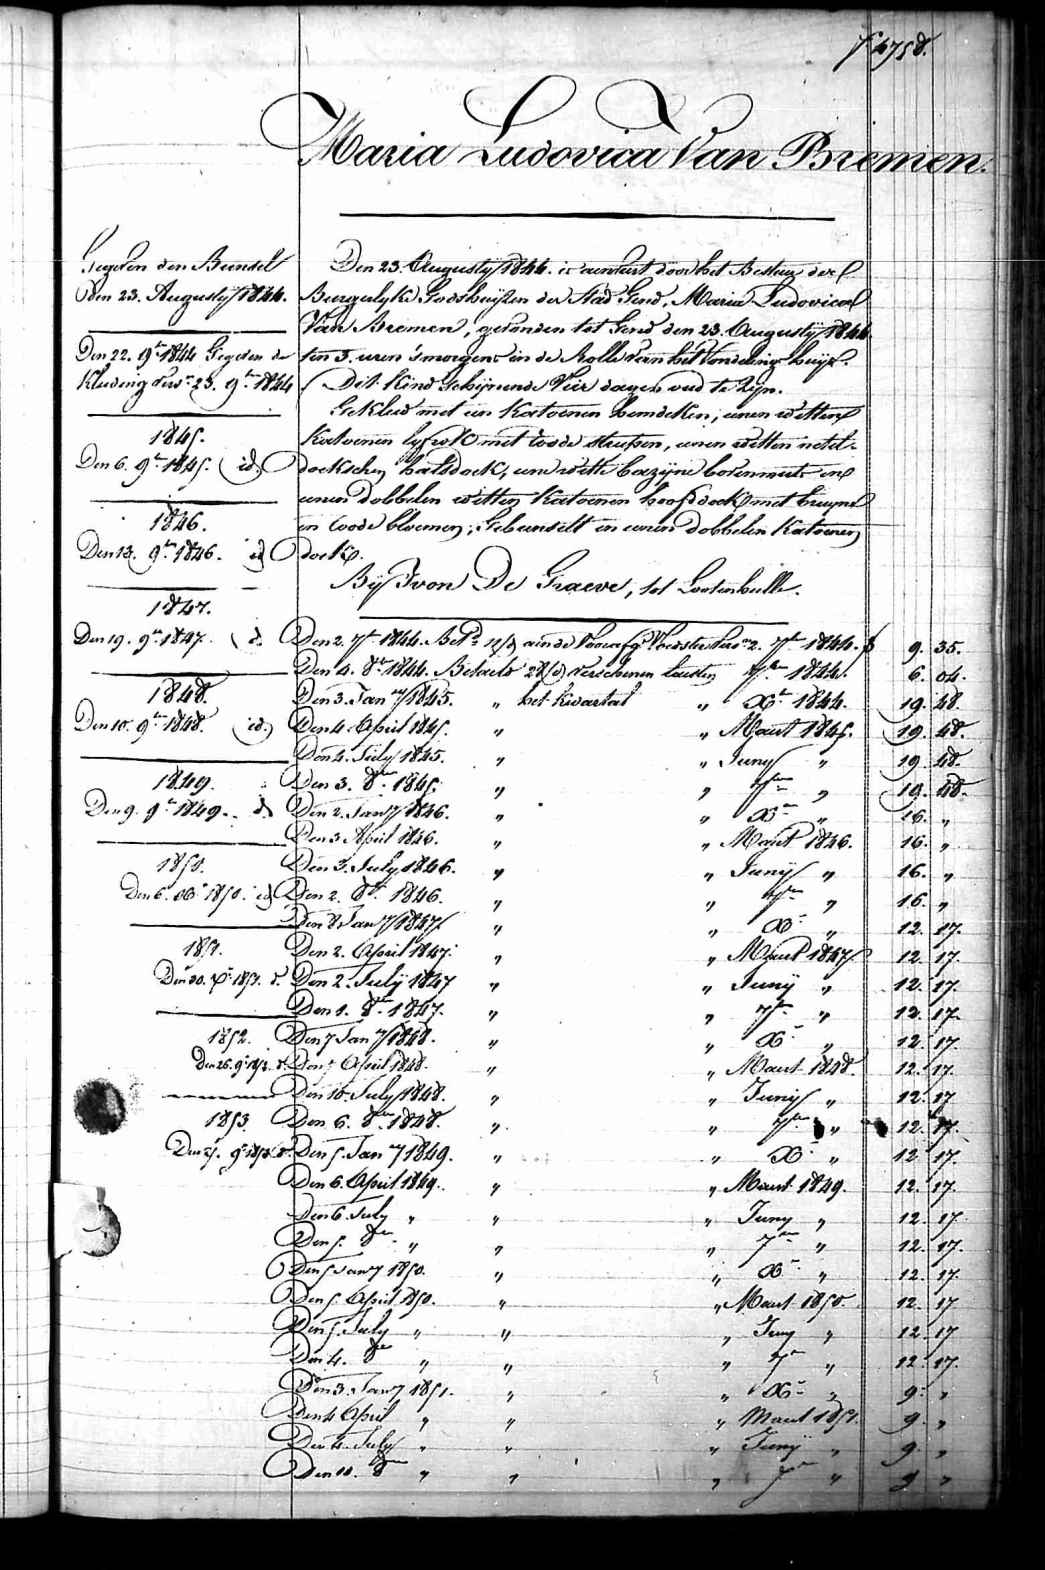 f 275 d.
Maria Ludovica Van Bremen.
Gegeven den Bunsel
den 23. Augusty 1844.
Den 22. 9br 1844 Gegeven de
Kleeding 23. 9br 1844
1845.
Den 6. 9br 1845. id.
1846.
Den 13. 9br 1846. id
1847.
Den 19. 9br 1847. d.
1848.
Den 10. 9br 1848. id.
1849.
Den 9. 9br 1849. d
1850.
Den 6. 1850. id
1851.
1851. d.
1852.
Den 26. 9br d.
1853.
Den 23. Augusty 1844. is aenveert door het Bestuer der
Burgerlyke Godshuyzen der Stad Gend, Maria Ludovica
Van Bremen, gevonden tot Gend den 23. Augusty 1844
ten 3. uren 'smorgens in de Rolle van het Vondeling huys.
Dit Kind schynende Vier dagen oud te zyn.
Gekleed met een Katoenen hemdeken, eenen witten
Katoenen lyfrok met roode streepen, eenen witten netel-
doekschen halsdoek, eene witte bazyne bovenmuts en
eenen dobbelen witten Katoenen hoofddoek met bruyne
en roode bloemen; Gebunselt in eenen dobbelen Katoenen
doek.
By Ivon De Graeve, tot Lootenhulle.
Den 2. 7br 1844. aen de Voedster 2. 7br 1844. f 9. 35.
Den 4. 8br 1844. Betaelt 28/d verschenen lasten 7br 1844. 6. 04.
Den 3. Jany 1845. " het kwartael " Xbr 1844. 19. 48.
Den 4. April 1845. " " Maert 1845. 19. 48.
Den 4. July 1845. " " Juny " 19. 48.
Den 3. 8br 1845. " " 7br " 19. 48.
Den 2. Jany 1846. " " Xbr " 16. "
Den 3 April 1846. " " Maert 1846. 16. "
Den 3. July 1846. " " Juny " 16. "
Den 2. 8br 1846. " " 7br " 16. "
Den 8 Jany 1847. " " Xbr " 12. 17.
Den 2. April 1847. " " Maert 1847 12. 17.
Den 2. July 1847 " " Juny " 12. 17.
Den 1. 8br 1847. " " 7br " 12. 17.
Den 7 Jany 1848. " " Xbr " 12. 17.
Den 7 April 1848. " " Maert 1848. 12. 17.
Den 10. July 1848. " " Juny " 12. 17.
Den 6. 8br 1848. " " 7br " 12. 17.
Den 5. Jany 1849. " " Xbr " 12. 17.
Den 6. April 1849. " " Maert 1849. 12. 17.
Den 6. July " " " Juny " 12. 17
Den 5. 8br " " " 7br " 12. 17.
Den 5 Jany 1850. " " Xbr " 12. 17.
Den 5. April 1850. " " Maert 1850. 12. 17
Den 5. July " " " Juny " 12. 17
Den 4. 8br " " " 7br " 12. 17.
Den 3. Jany 1851. " " Xbr " 9. "
Den 4 April " " " Maert 1851. 9. "
Den 4. July " " " Juny " 9 "
Den 10. 8br " " " 7br " 9 "